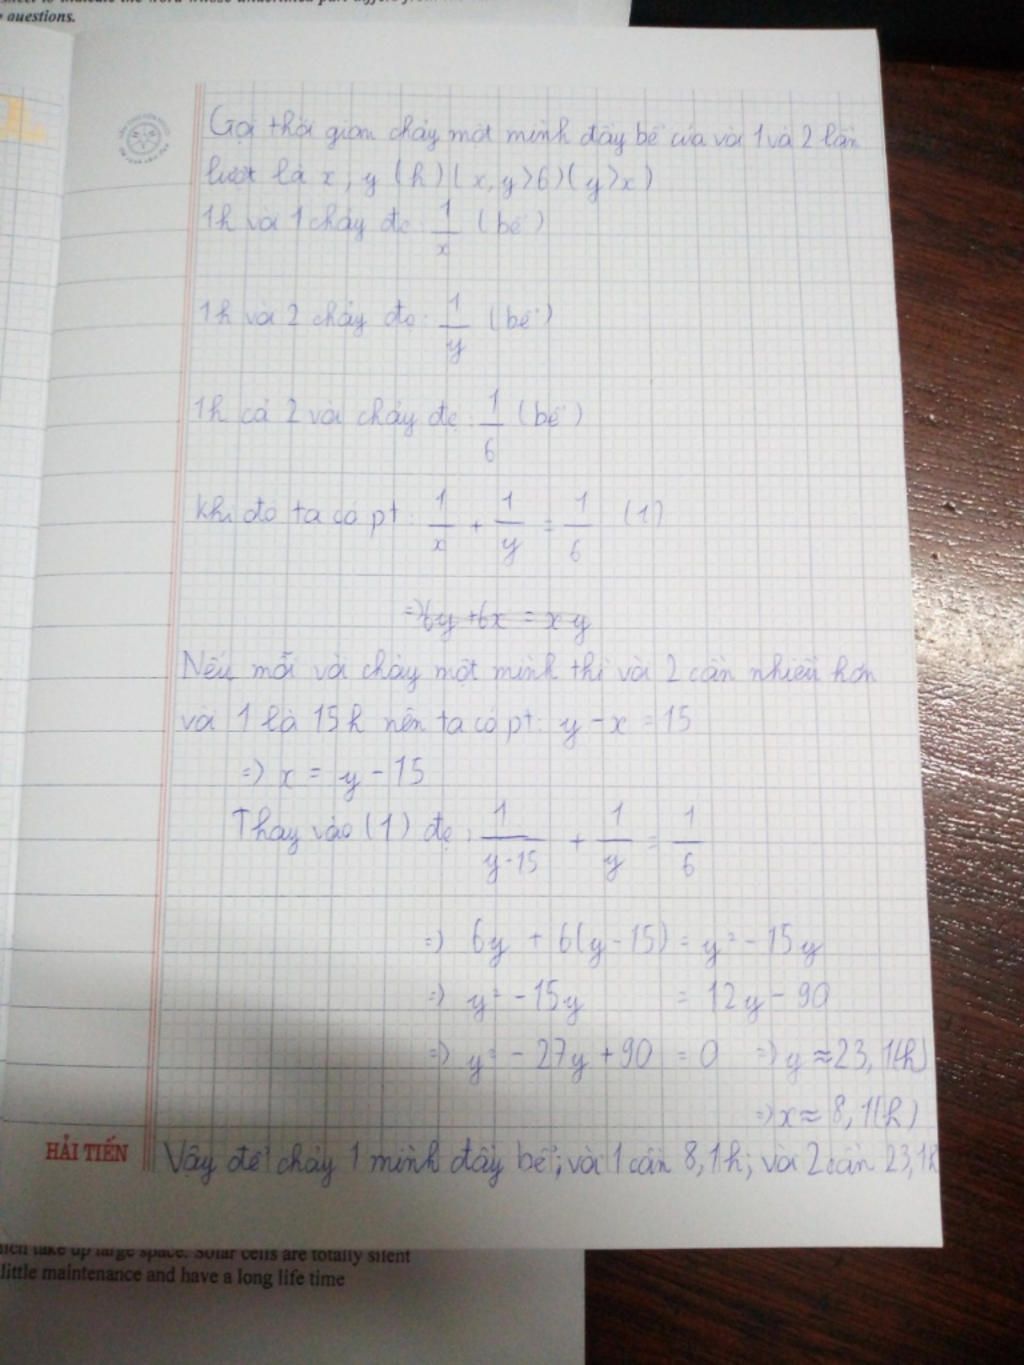 auestions.
Gọi thời gian chảy một mình đầy bể của vòi 1 và 2 lần
lượt là x, y (h) (x, y > 6) (y > x)
1h vòi 1 chảy đc: 1/x (bể)
1h vòi 2 chảy đc: 1/y (bể)
1h cả 2 vòi chảy đc: 1/6 (bể)
Khi đó ta có pt: 1/x + 1/y = 1/6 (1)
=> 6y + 6x = xy
Nếu mỗi vòi chảy một mình thì vòi 2 cần nhiều hơn
vòi 1 là 15h nên ta có pt: y - x = 15
=> x = y - 15
Thay vào (1) đc: 1/(y-15) + 1/y = 1/6
=> 6y + 6(y - 15) = y² - 15y
=> y² - 15y = 12y - 90
=> y² - 27y + 90 = 0 => y ≈ 23,1(h)
=> x ≈ 8,1(h)
HẢI TIẾN
Vậy để chảy 1 mình đầy bể; vòi 1 cần 8,1h; vòi 2 cần 23,1h
take up large space. Solar cells are totally silent
little maintenance and have a long life time